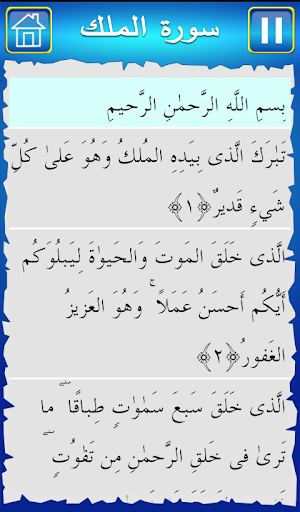 سورة الملك
بِسمِ اللَّهِ الرَّحمٰنِ الرَّحيمِ
تَبٰرَكَ الَّذى بِيَدِهِ المُلكُ وَهُوَ عَلىٰ كُلِّ
شَيءٍ قَديرٌ﴿١﴾
الَّذى خَلَقَ المَوتَ وَالحَيوٰةَ لِيَبلُوَكُم
أَيُّكُم أَحسَنُ عَمَلًا ۚ وَهُوَ العَزيزُ
الغَفورُ﴿٢﴾
الَّذى خَلَقَ سَبعَ سَمٰوٰتٍ طِباقًا ۖ ما
تَرىٰ فى خَلقِ الرَّحمٰنِ مِن تَفٰوُتٍ ۖ